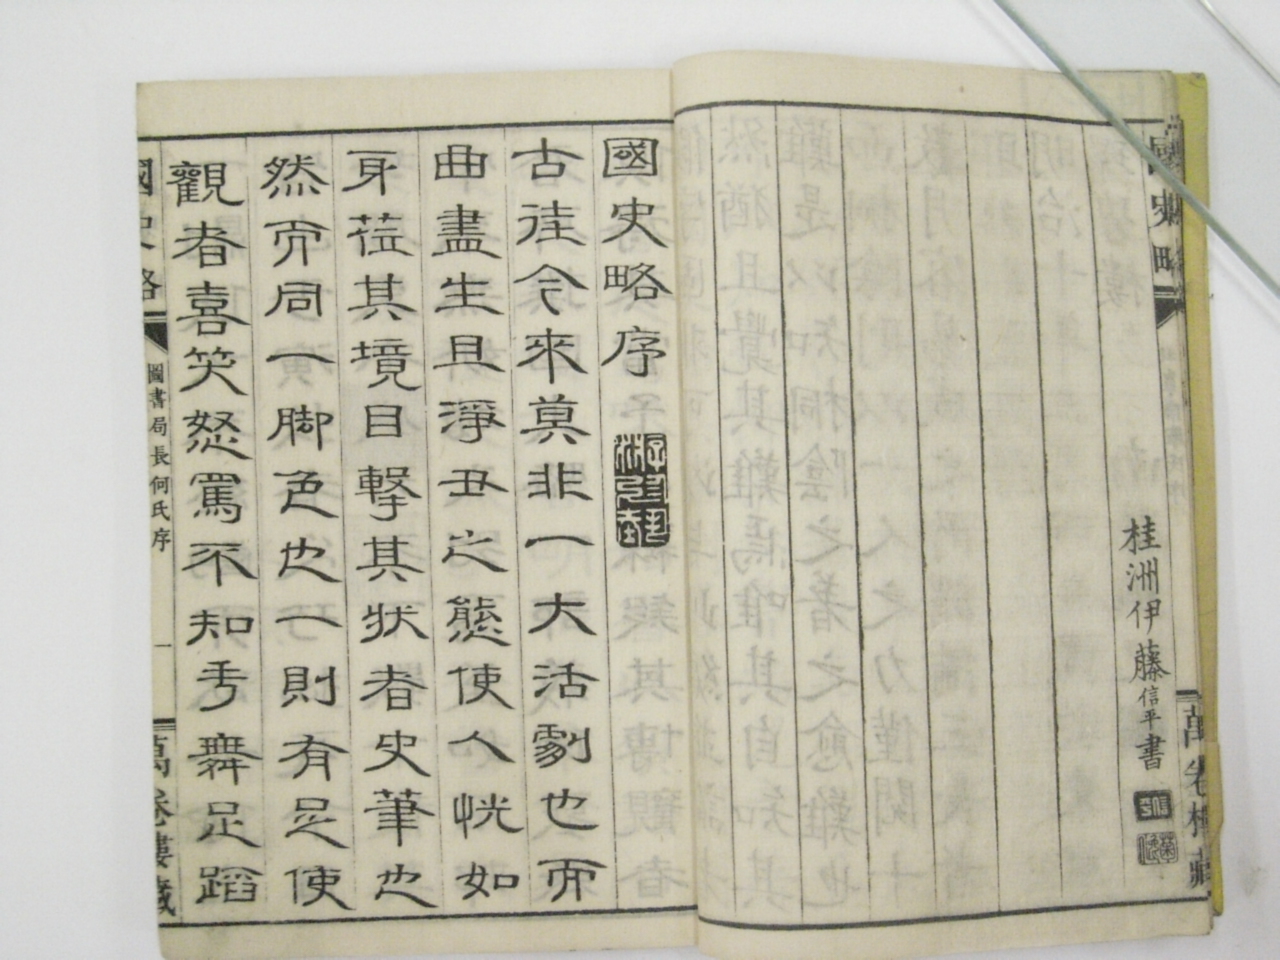 國史略
桂洲伊藤信平書
萬卷樓藏
國史略序
古往今來莫非一大活劇也而
曲盡生且淨丑之態使人恍如
身莅其境目擊其狀者史筆也
然而同一脚色也一則有足使
觀者喜笑怒罵不知手舞足蹈
國史略
圖書局長何氏序
一
萬卷樓藏